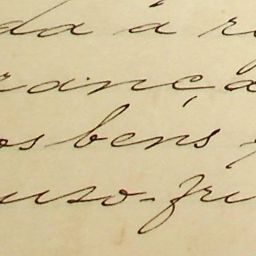 da á r
rança
os bens
uso-fru